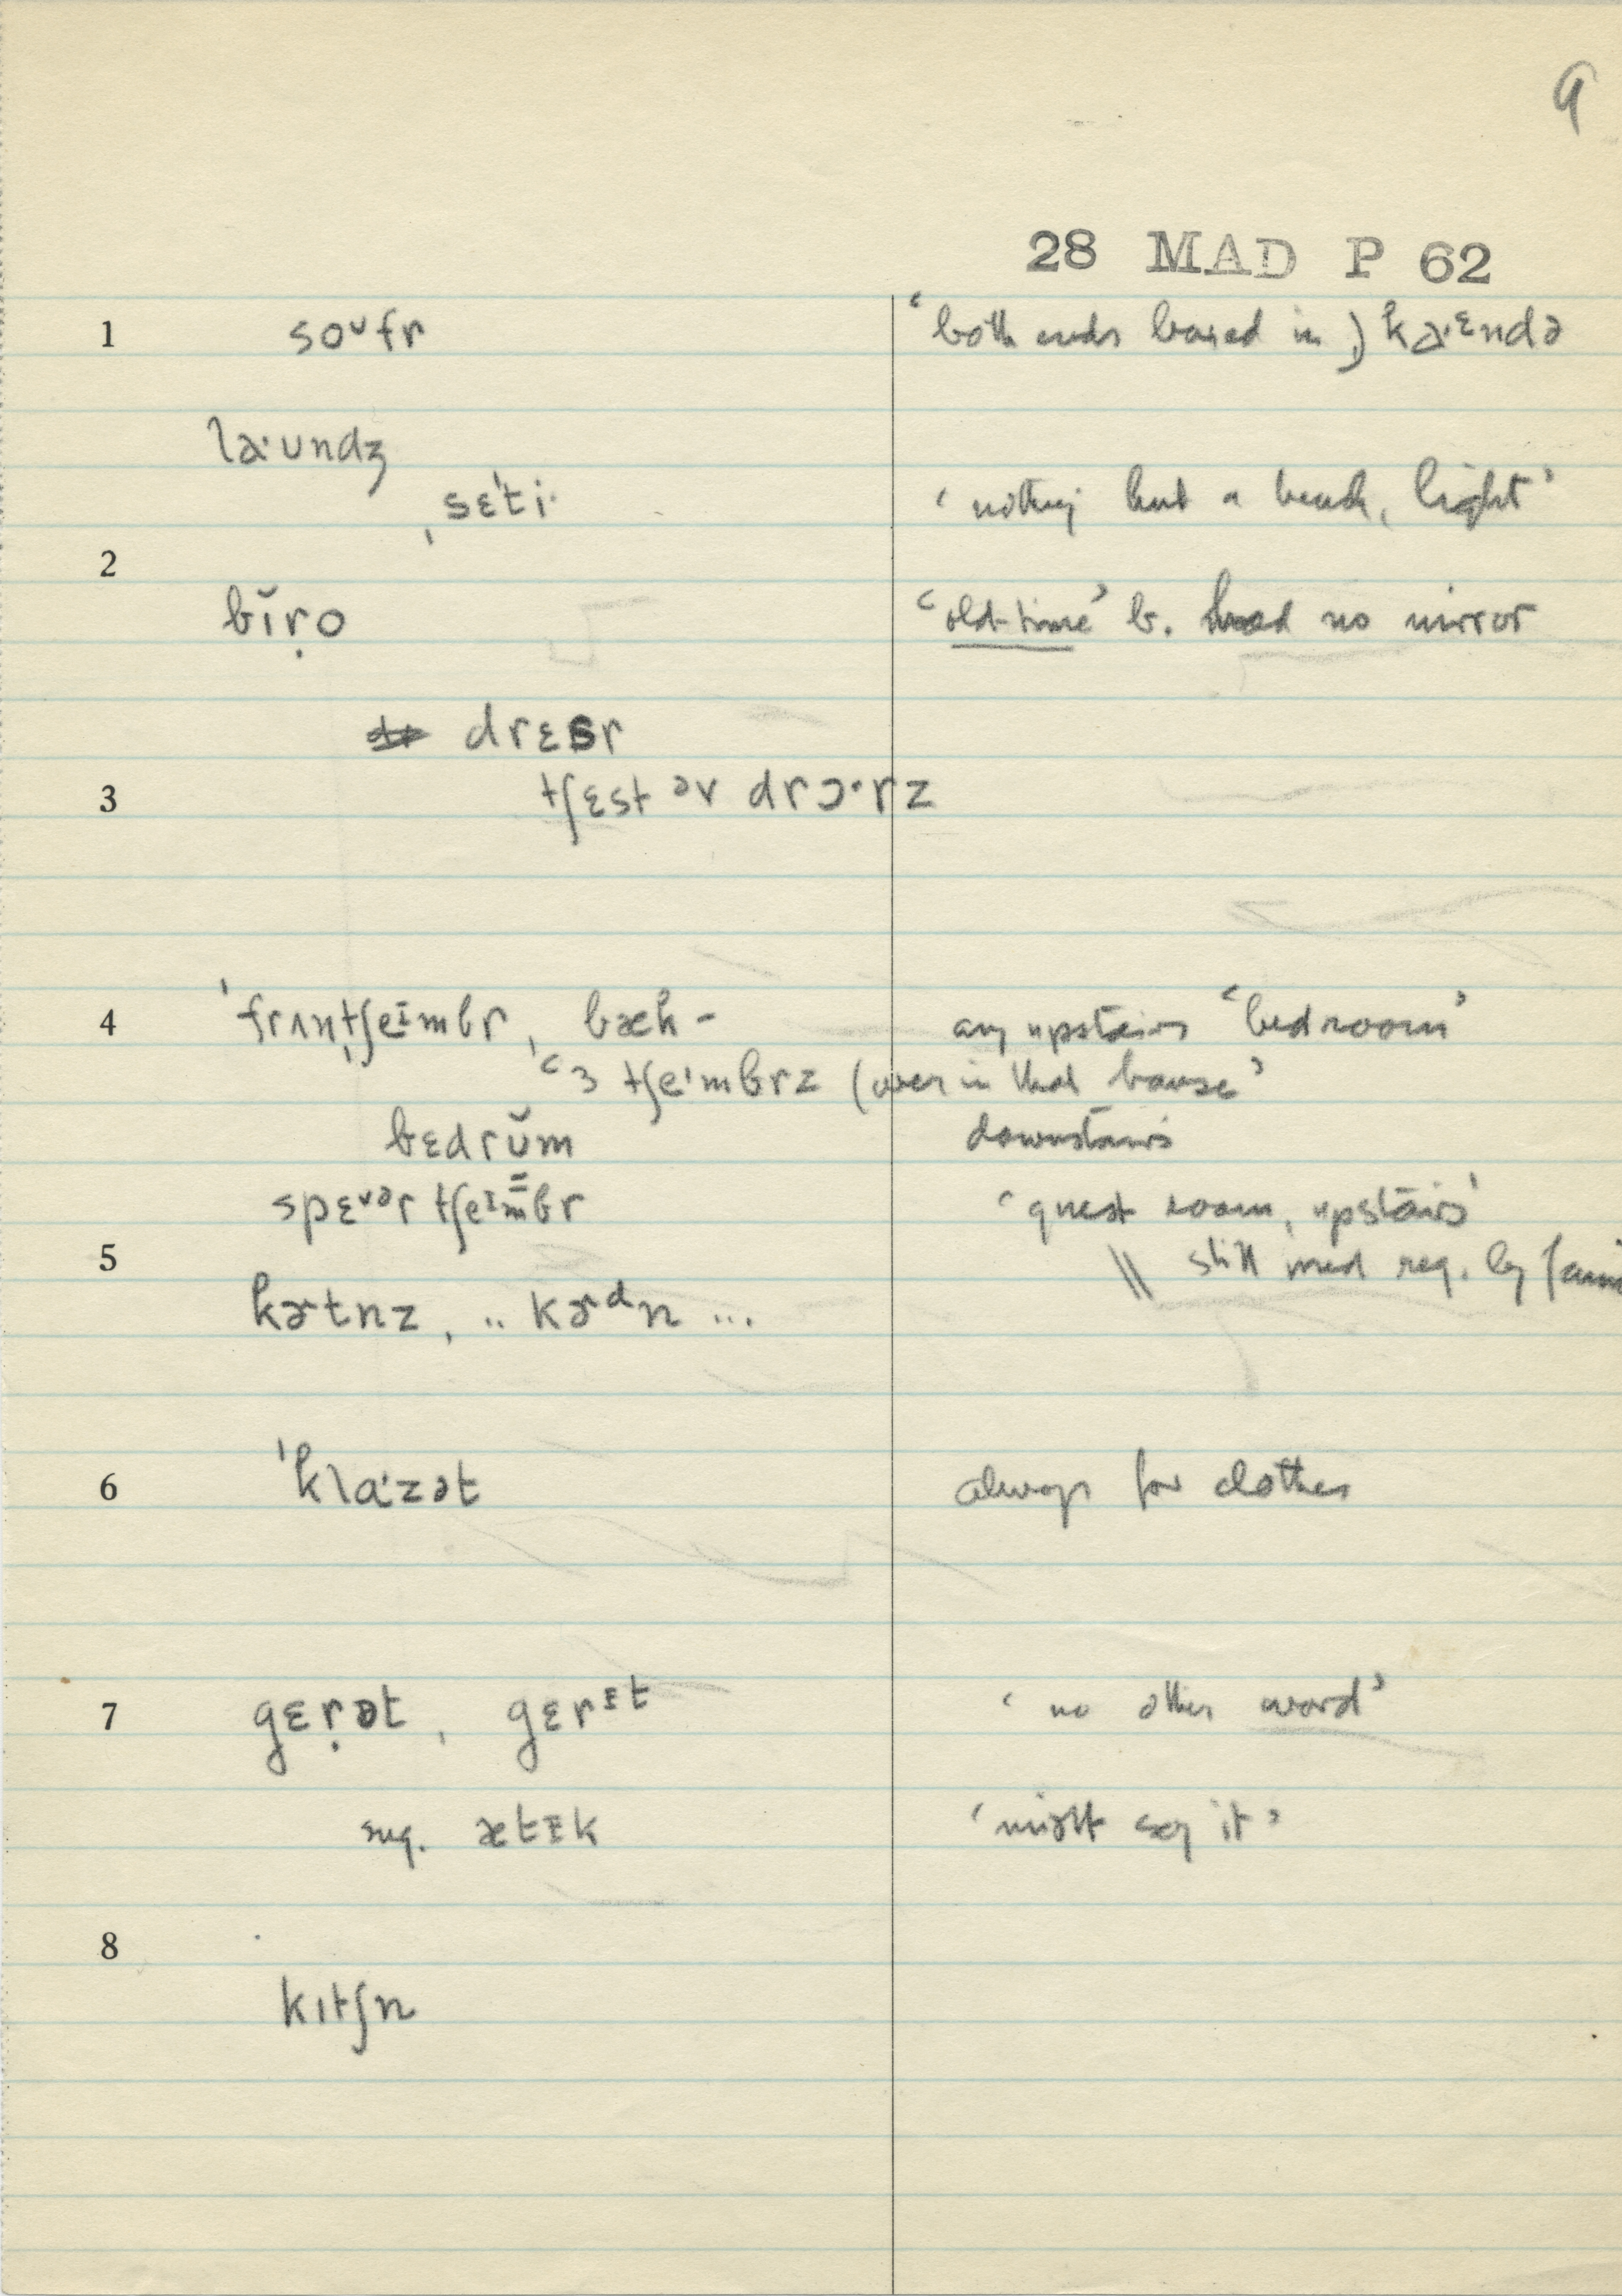 9
28 MAD P 62
1 soᴜfr ‘both ends boxed in,) ka·ᵋndə
la·ᴜndʒ
, sɛ'ti· ‘nothing but a bench, light’
2
bĭṛo ‘old-time’ b. had no mirror
drɛsr
3 tʃɛst əv drɔ·rz
4 'frʌn̩tʃeᶦmbr, bæk- any upstairs ‘bedroom’
‘3 tʃeᶦmbrz (over in that house’
bɛdrŭm downstairs
spɛᵛᵊr tʃeᶦmbr ‘guest room, upstairs’
5 \\ still used reg. by
kɚtnz, .. kɚᵈn ...
6 'kla·zət always for clothes
7 gɛṛət, gɛrᵻt ‘no other word’
sug. ætᵻk ‘might say it’
8
kɪtʃn